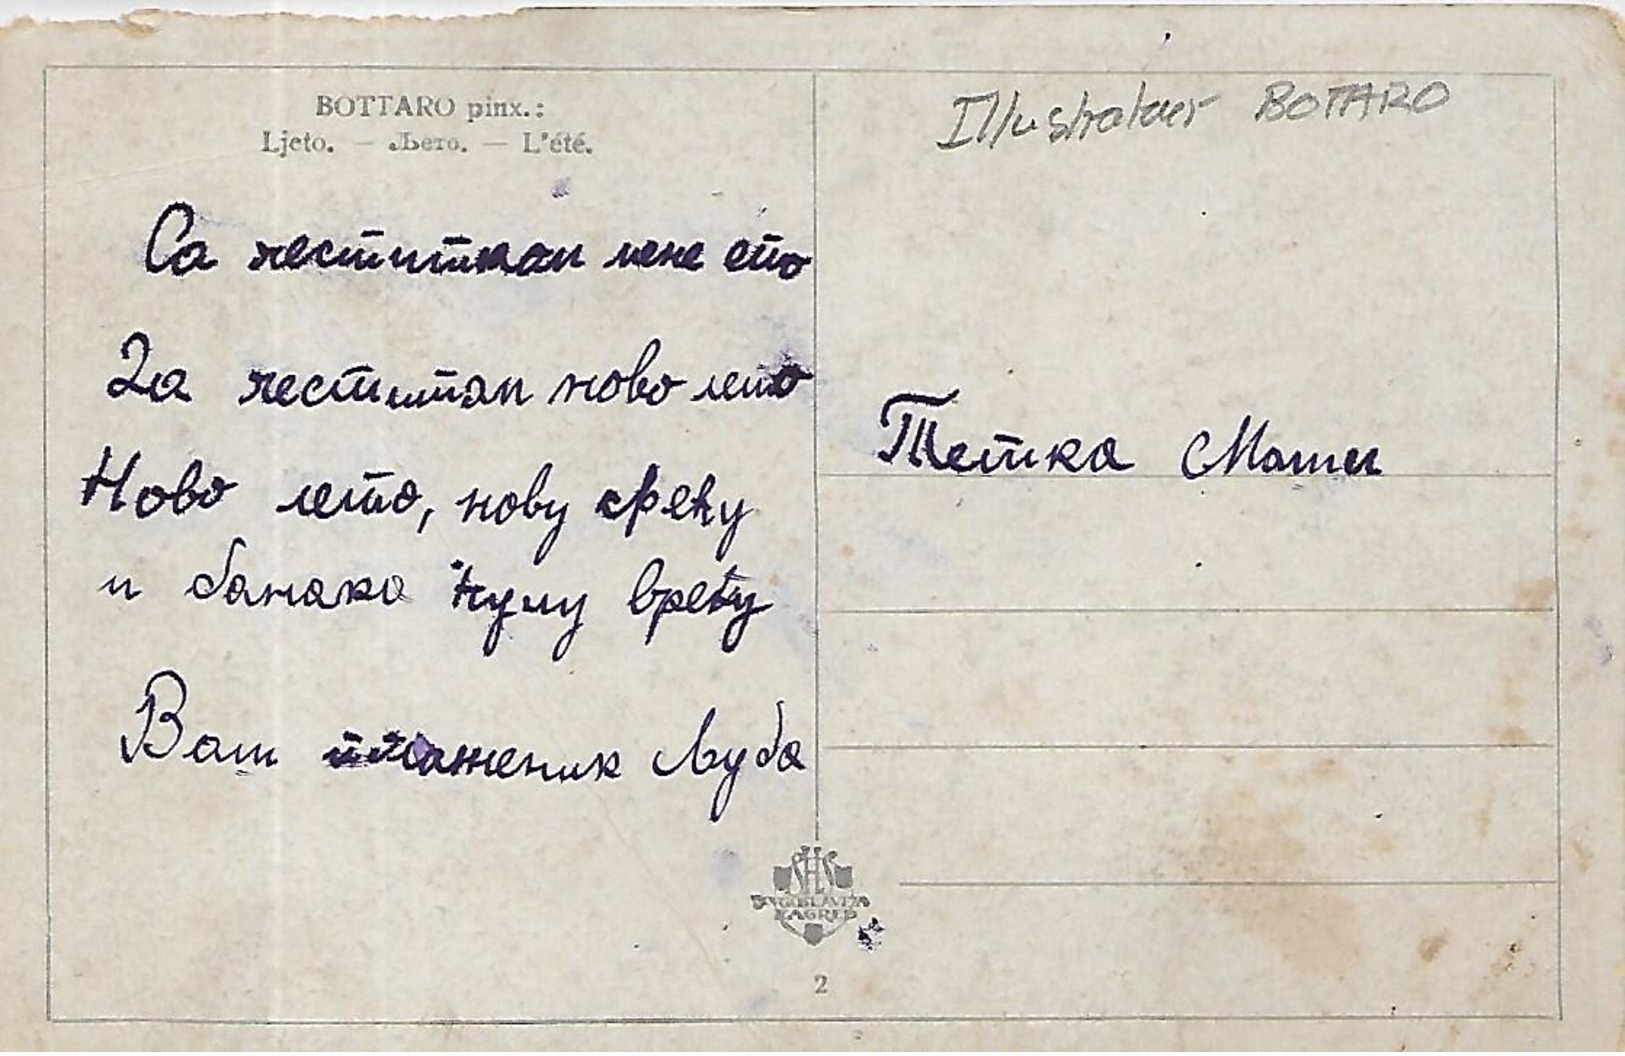 BOTTARO pinx.:
Ljeto. — Љето. — L'été.
Illustrateur BOTARO
Са честитком мене ето
Да честитам ново лето
Ново лето, нову срећу
и банака пуну врећу
Ваш Љуба
Тетка
SHS
JUGOSLAVIJA
ZAGREB
2